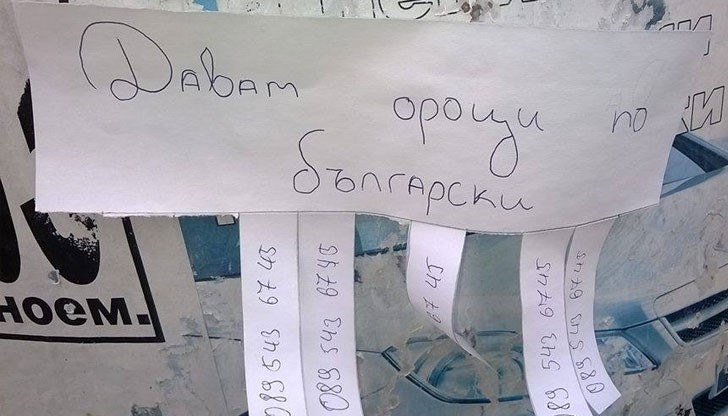 Давам орощи по
български
089 543 6745
089 543 6745
6745
089 543 6745
089 543 6745
ноем.